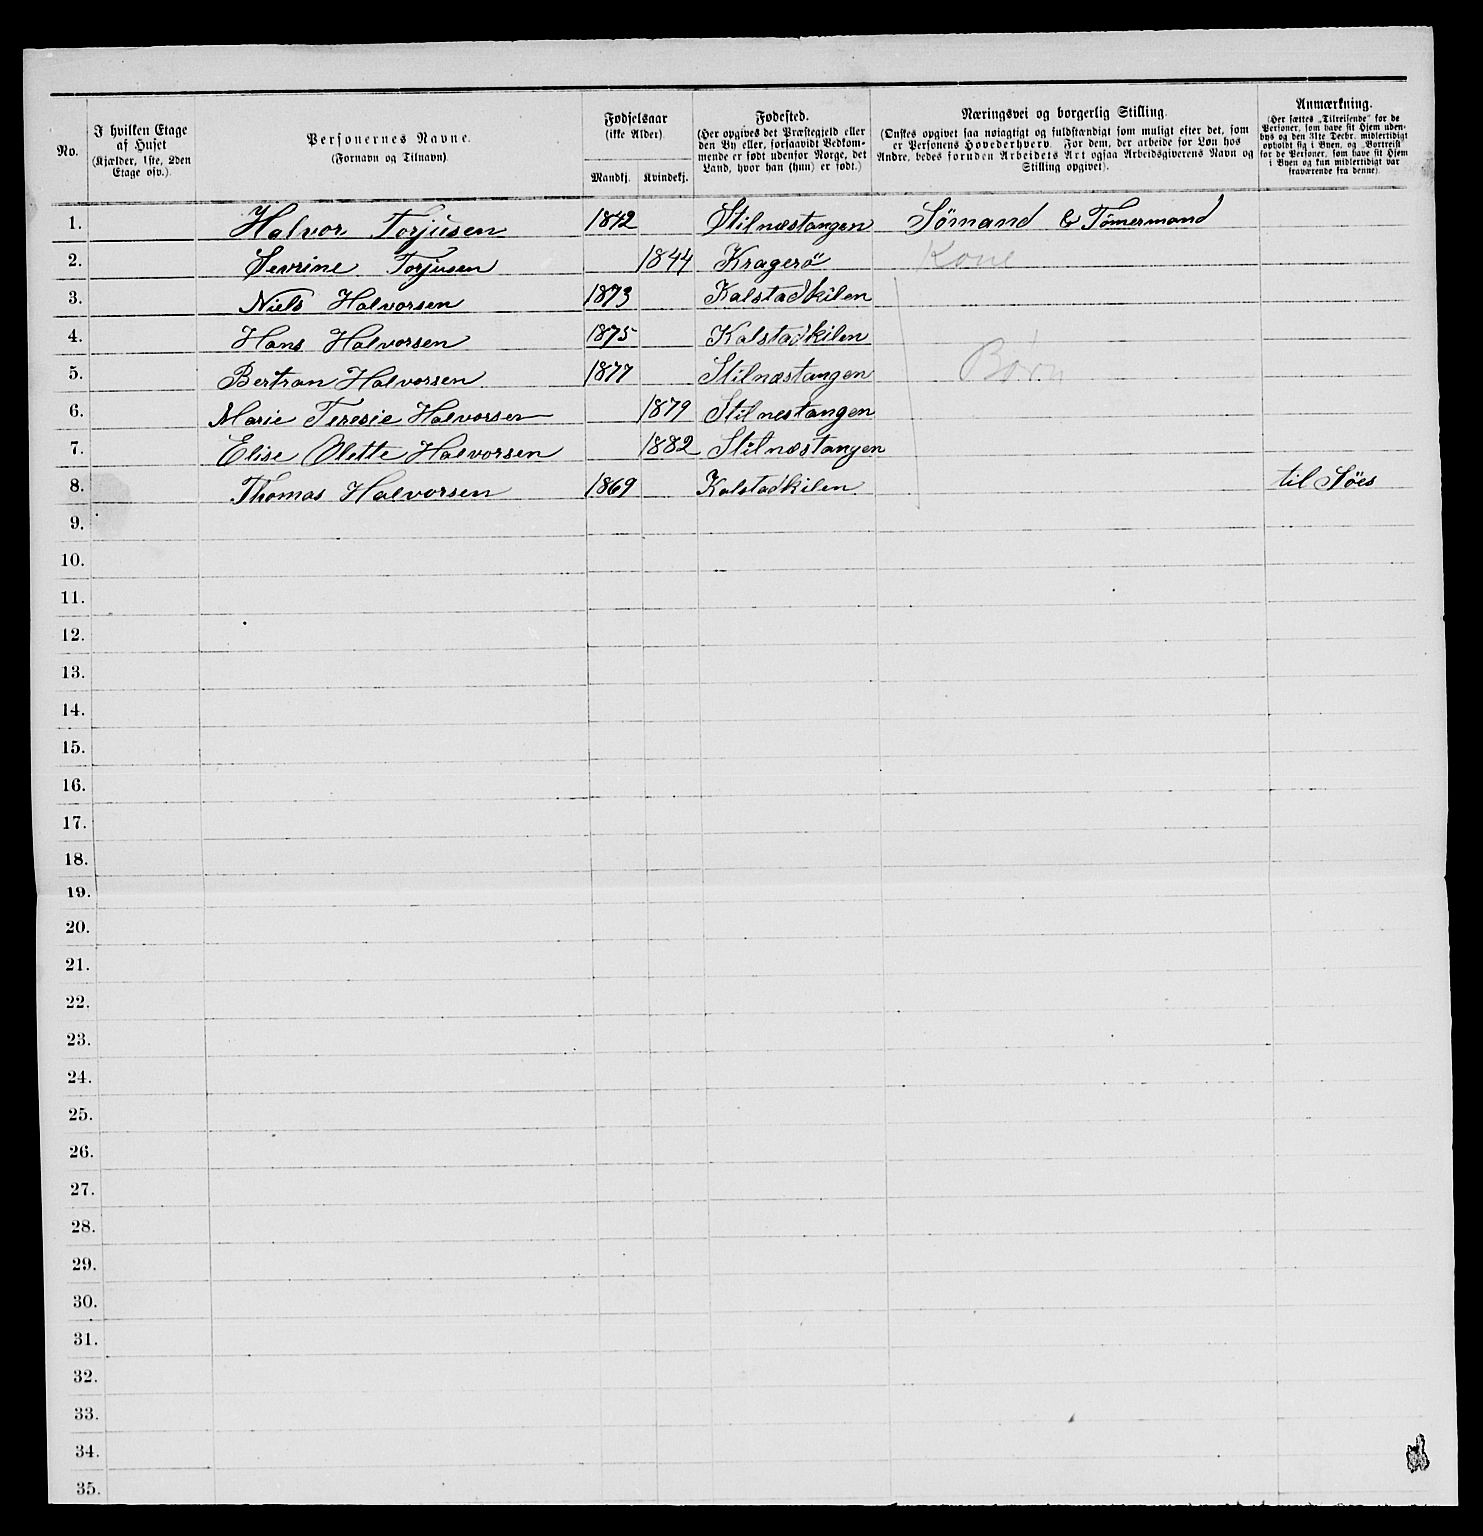 No.
I hvilken Etage
af Huset
(Kjælder, 1ste, 2den
Etage osv.).
Personernes Navne.
(Fornavn og Tilnavn).
Fødselsaar
(ikke Alder).
Mandkj. Kvindekj.
Fødested.
(Her opgives det Præstegjeld eller
den By eller, forsaavidt Vedkom-
mende er født udenfor Norge, det
Land, hvor han (hun) er født.)
Næringsvei og borgerlig Stilling.
(Ønskes opgivet saa nøiagtigt og fuldstændigt som muligt efter det, som
er Personens Hovederhverv. For dem, der arbeide for Løn hos
Andre, bedes foruden Arbeidets Art ogsaa Arbeidsgiverens Navn og
Stilling opgivet).
Anmærkning.
(Her sættes „Tilreisende“ for de
Personer, som have sit Hjem uden-
bys og den 31te Decbr. midlertidigt
opholdt sig i Byen, og „Bortreist“
for de Personer, som have sit Hjem
i Byen og kun midlertidigt var
fraværende fra denne)
1. Halvor Torjusen 1842 Stilnæstangen Sömand & Tömermand
2. Sevrine Torjusen 1844 Kragerö Kone
3. Niels Halvorsen 1873 Kalstadkilen
4. Hans Halvorsen 1875 Kalstadkilen
5. Bertran Halvorsen 1877 Stilnæstangen Børn
6. Marie Teresie Halvorsen 1879 Stilnestangen
7. Elise Olette Halvorsen 1882 Stilnæstangen
8. Thomas Halvorsen 1869 Kalstadkilen til Söes
9.
10.
11.
12.
13.
14.
15.
16.
17.
18.
19.
20.
21.
22.
23.
24.
25.
26.
27.
28.
29.
30.
31.
32.
33.
34.
35.